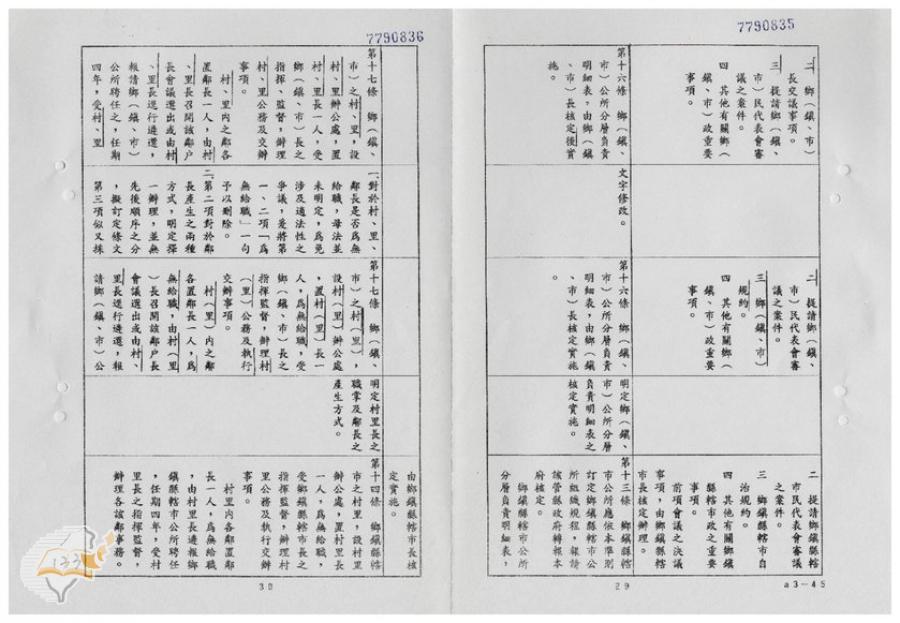 7790835
二 鄉（鎮、市）
長交議事項。
三 提請鄉（鎮、
市）民代表會審
議之案件。
四 其他有關鄉（
鎮、市）政重要
事項。
第十六條 鄉（鎮、
市）公所分層負責
明細表，由鄉（鎮
、市）長核定後實
施。
文字修改。
二 提請鄉（鎮、
市）民代表會審
議之案件。
三 鄉（鎮、市）
規約。
四 其他有關鄉（
鎮、市）政重要
事項。
第十六條 鄉（鎮、
市）公所分層負責
明細表，由鄉（鎮
、市）長核定實施
。
明定鄉（鎮、
市）公所分層
負責明細表之
核定實施。
二 提請鄉鎮縣轄
市民代表會審議
之案件。
三 鄉鎮縣轄市自
治規約。
四 其他有關鄉鎮
縣轄市政之重要
事項。
前項會議之決議
事項，由鄉鎮縣轄
市長核定辦理。
第十三條 鄉鎮縣轄
市公所應依本準則
訂定鄉鎮縣轄市公
所組織規程，報請
該管縣政府轉報本
府核定。
鄉鎮縣轄市公所
分層負責明細表，
29
a3-45
7790836
第十七條 鄉（鎮、
市）之村、里，設
村、里辦公處，置
村、里長一人，受
鄉（鎮、市）長之
指揮、監督，辦理
村、里公務及交辦
事項。
村、里內之鄰各
置鄰長一人，由村
、里長召開該鄰戶
長會議選出或由村
、里長逕行遴選，
報請鄉（鎮、市）
公所聘任之，任期
四年，受村、里
一、對於村、里、
鄰長是否為無
給職，母法並
未明定，為免
涉及適法性之
爭議，爰將第
一、二項「為
無給職」一句
予以刪除。
二、第二項對於鄰
長產生之兩種
方式，明定擇
一辦理，並無
先後順序之分
，擬訂定條文
第三項似又採
第十七條 鄉（鎮、
市）之村（里），
設村（里）辦公處
，置村（里）長一
人，為無給職，受
鄉（鎮、市）長之
指揮監督，辦理村
（里）公務及執行
交辦事項。
村（里）內之鄰
各置鄰長一人，為
無給職，由村（里
）長召開該鄰戶長
會議選出或由村、
里長逕行遴選，報
請鄉（鎮、市）公
明定村里長之
職掌及鄰長之
產生方式。
由鄉鎮縣轄市長核
定實施。
第十四條 鄉鎮縣轄
市之村里，設村里
辦公處，置村里長
一人，為無給職，
受鄉鎮縣轄市長之
指揮監督，辦理村
里公務及執行交辦
事項。
村里內各鄰置鄰
長一人，為無給職
，由村里長遴報鄉
鎮縣轄市公所聘任
，任期四年，受村
里長之指揮監督，
辦理各該鄰事務。
30